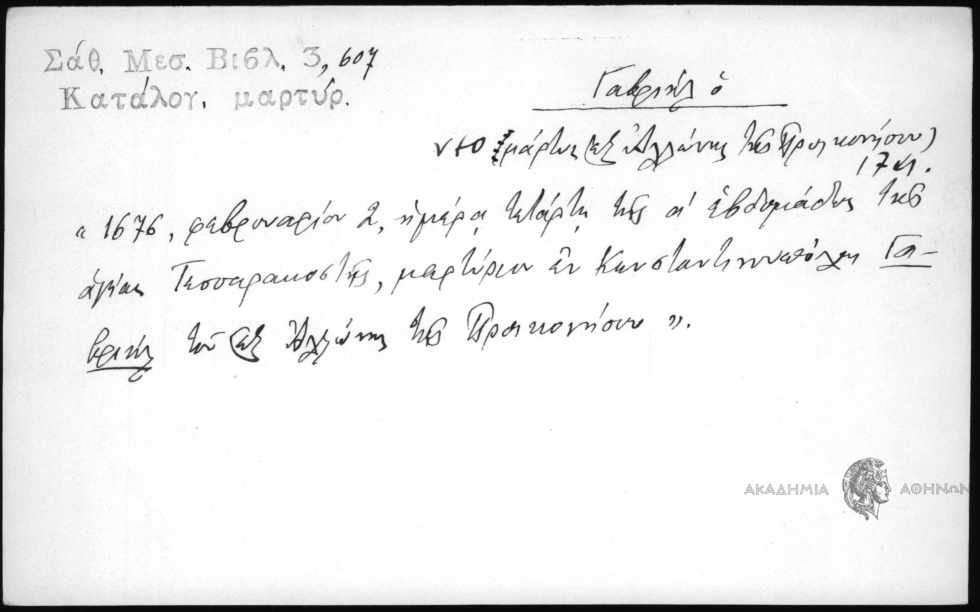 Σάθ. Μεσ. Βιβλ. 3, 607
Κατάλογ. μαρτύρ.
Γαβριήλ ὁ
νεο μάρτυς (ἐξ Ἁλώνης τῆς Προικονήσου)
17 αι.
« 1676, φεβρουαρίου 2, ἡμέρᾳ τετάρτῃ τῆς α' ἑβδομάδος τῆς
ἁγίας Τεσσαρακοστῆς, μαρτύριον ἐν Κωνσταντινουπόλει Γα-
βριήλ τοῦ ἐξ Ἁλώνης τῆς Προικονήσου ».
ΑΚΑΔΗΜΙΑ ΑΘΗΝΩΝ